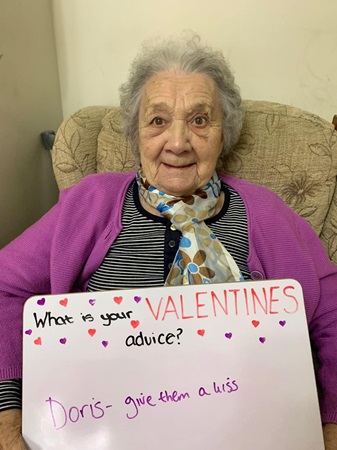 What is your VALENTINES
advice?
Doris- give them a kiss